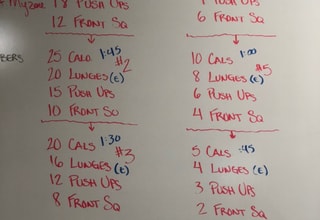 Myzone 18 PUSH UPS
12 FRONT SQ
BERS
25 CALS 1:45
#2
20 LUNGES (E)
15 PUSH UPS
10 FRONT SQ
20 CALS 1:30
16 LUNGES (E) #3
12 PUSH UPS
8 FRONT SQ
PUSH UPS
6 FRONT SQ
10 CALS 1:00
8 LUNGES (E) #5
6 PUSH UPS
4 FRONT SQ
5 CALS :45
4 LUNGES (E)
3 PUSH UPS
2 FRONT SQ